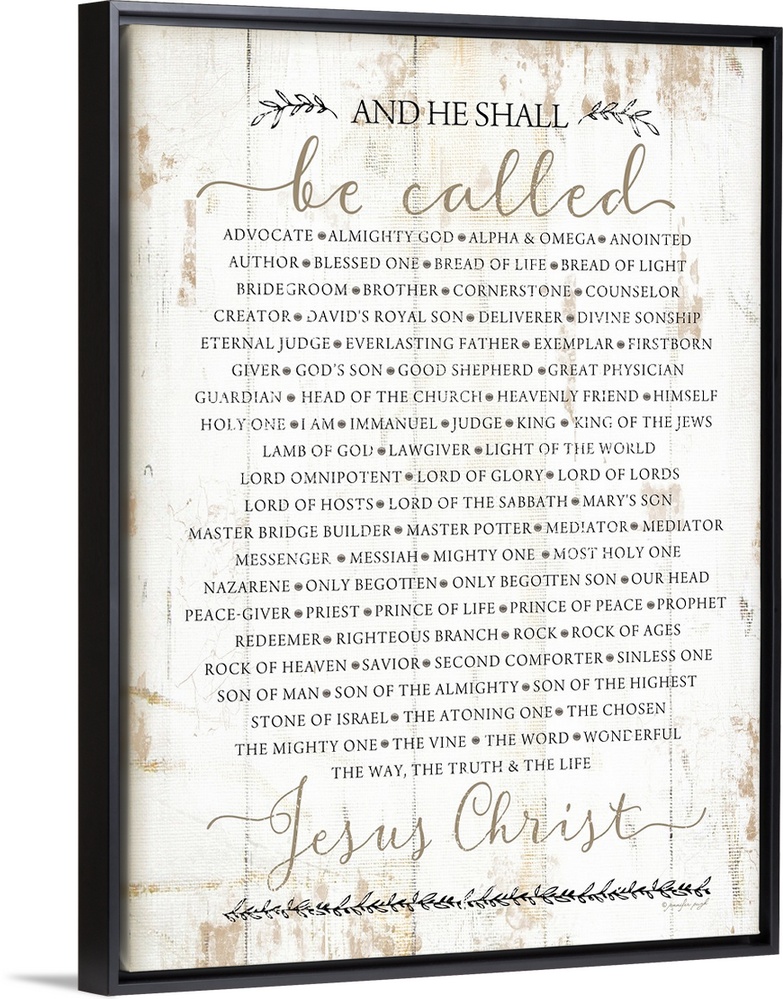 AND HE SHALL
be called
ADVOCATE • ALMIGHTY GOD • ALPHA & OMEGA • ANOINTED
AUTHOR • BLESSED ONE • BREAD OF LIFE • BREAD OF LIGHT
BRIDEGROOM • BROTHER • CORNERSTONE • COUNSELOR
CREATOR • DAVID'S ROYAL SON • DELIVERER • DIVINE SONSHIP
ETERNAL JUDGE • EVERLASTING FATHER • EXEMPLAR • FIRSTBORN
GIVER • GOD'S SON • GOOD SHEPHERD • GREAT PHYSICIAN
GUARDIAN • HEAD OF THE CHURCH • HEAVENLY FRIEND • HIMSELF
HOLY ONE • I AM • IMMANUEL • JUDGE • KING • KING OF THE JEWS
LAMB OF GOD • LAWGIVER • LIGHT OF THE WORLD
LORD OMNIPOTENT • LORD OF GLORY • LORD OF LORDS
LORD OF HOSTS • LORD OF THE SABBATH • MARY'S SON
MASTER BRIDGE BUILDER • MASTER POTTER • MEDIATOR • MEDIATOR
MESSENGER • MESSIAH • MIGHTY ONE • MOST HOLY ONE
NAZARENE • ONLY BEGOTTEN • ONLY BEGOTTEN SON • OUR HEAD
PEACE-GIVER • PRIEST • PRINCE OF LIFE • PRINCE OF PEACE • PROPHET
REDEEMER • RIGHTEOUS BRANCH • ROCK • ROCK OF AGES
ROCK OF HEAVEN • SAVIOR • SECOND COMFORTER • SINLESS ONE
SON OF MAN • SON OF THE ALMIGHTY • SON OF THE HIGHEST
STONE OF ISRAEL • THE ATONING ONE • THE CHOSEN
THE MIGHTY ONE • THE VINE • THE WORD • WONDERFUL
THE WAY, THE TRUTH & THE LIFE
Jesus Christ
© jennifer pugh